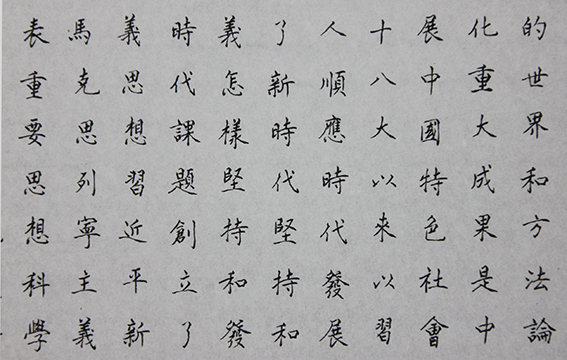 的世界和方法論
化重大成果是中
展中國特色社會
十八大以來以習
人順應時代發展
了新時代堅持和
義怎樣堅持和發
時代課題創立了
義思想習近平新
馬克思列寧主義
表重要思想科學